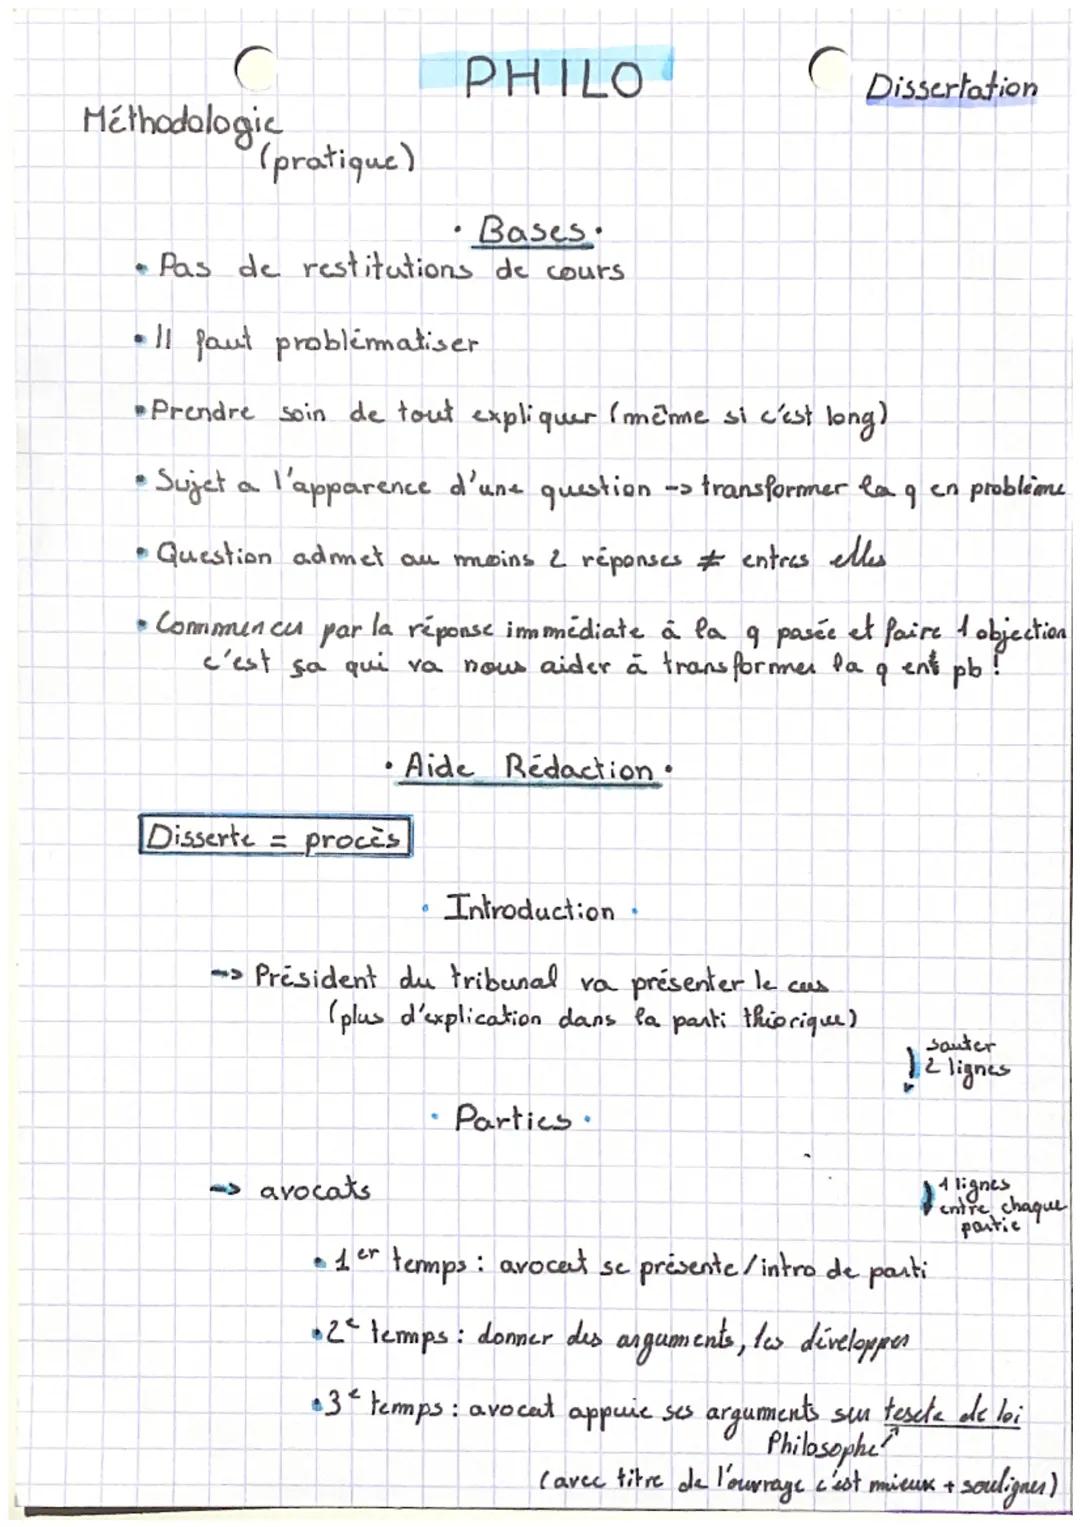 PHILO
Dissertation
Méthodologie
(pratique)
• Bases •
• Pas de restitutions de cours
• Il faut problématiser
• Prendre soin de tout expliquer (même si c'est long)
• Sujet a l'apparence d'une question -> transformer la q en problème
• Question admet au moins 2 réponses ≠ entres elles
• Commencer par la réponse immédiate à la q posée et faire 1 objection
c'est ça qui va nous aider à transformer la q ent pb !
• Aide Rédaction •
Disserte = procès
• Introduction •
-> Président du tribunal va présenter le cas
(plus d'explication dans la parti théorique)
sauter
2 lignes
• Parties •
-> avocats
1 lignes
entre chaque
partie
• 1er temps : avocat se présente/intro de parti
• 2e temps : donner des arguments, les développer
• 3e temps : avocat appuie ses arguments sur texte de loi
Philosophe
(avec titre de l'ouvrage c'est mieux + souligner)